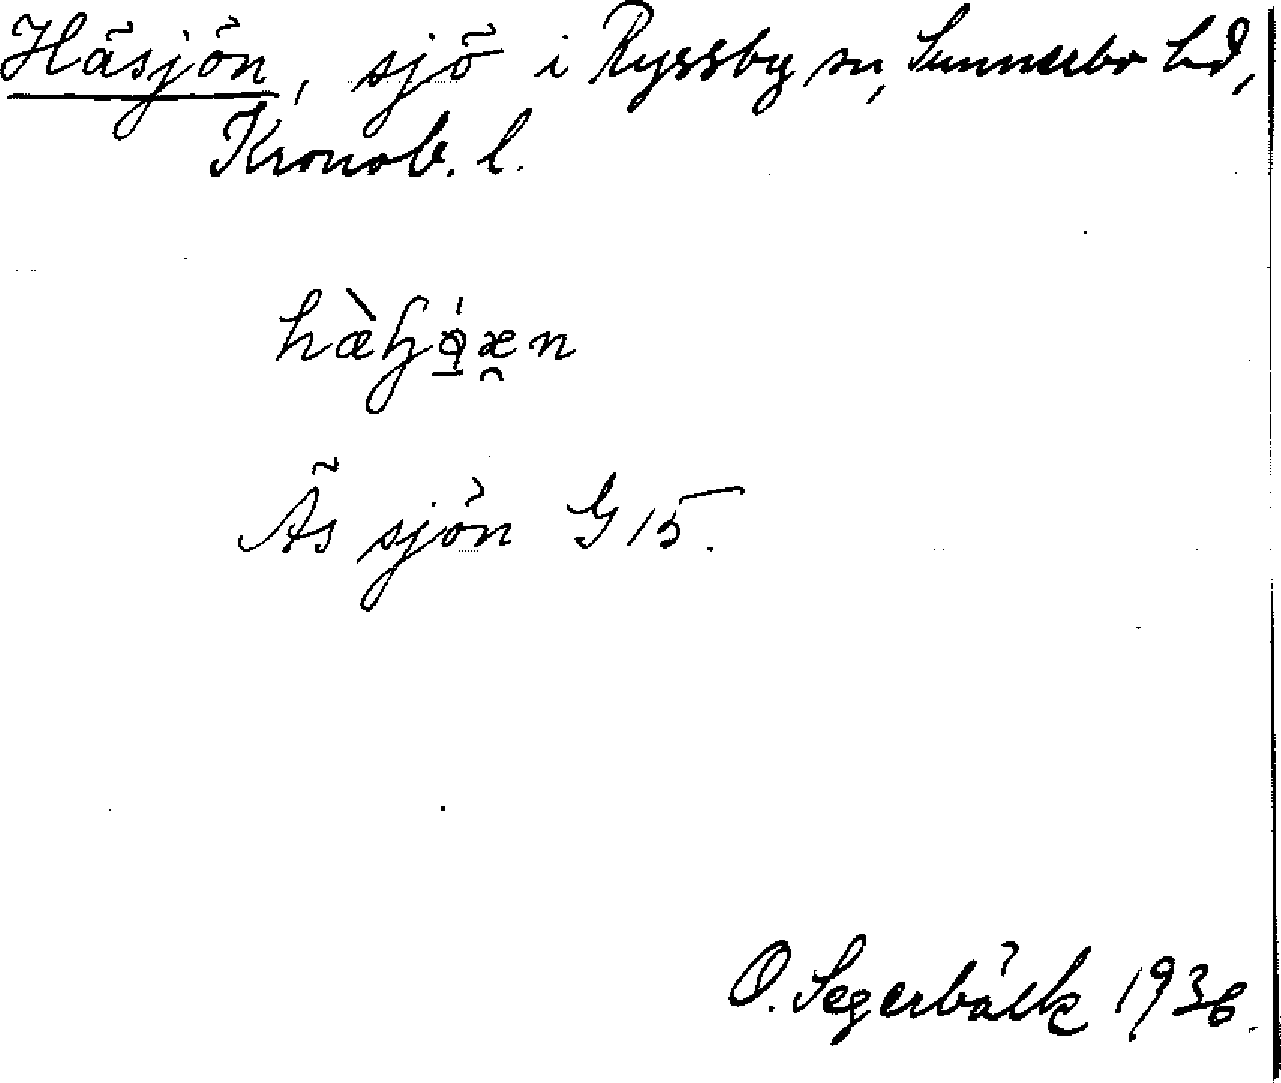 Häsjön, sjö i Ryssby sn, Sunnerbo hd,
Kronob. l.
Äs sjön G 15.
O. Segerbäck 1936.